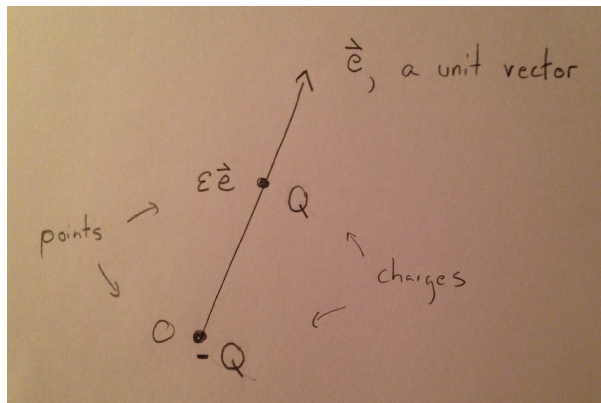 e⃗, a unit vector
εe⃗
Q
points
charges
O
-Q